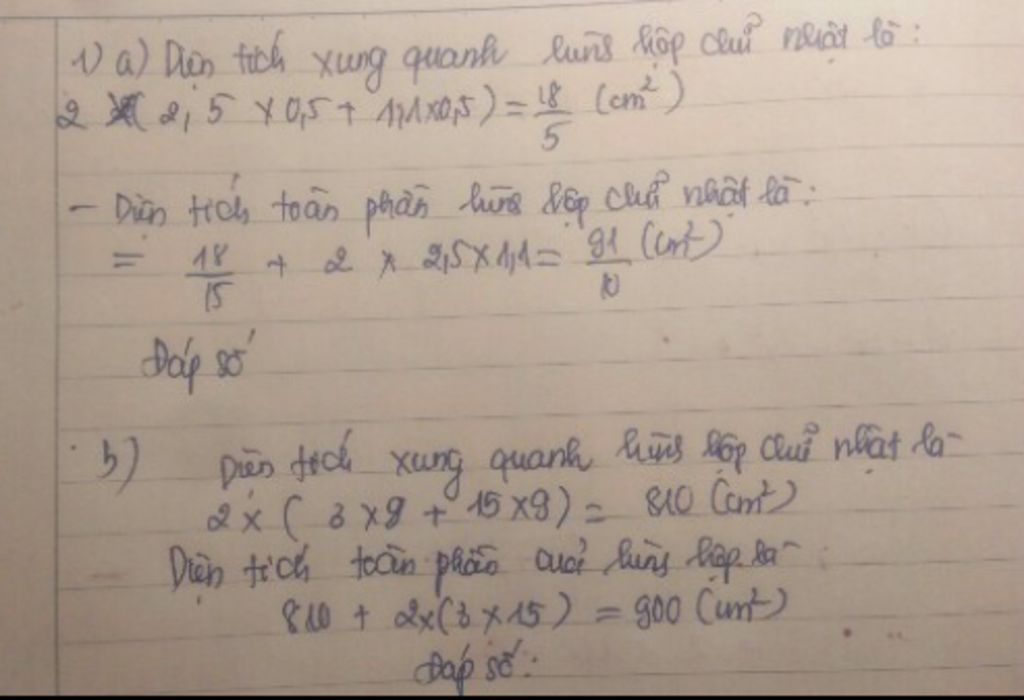 1) a) Diện tích xung quanh hình hộp chữ nhật là:
2 x ( 2,5 x 0,5 + 1,1 x 0,5 ) = 18/5 (cm²)
- Diện tích toàn phần hình hộp chữ nhật là:
= 18/15 + 2 x 2,5 x 1,1 = 91/10 (cm²)
Đáp số
b) Diện tích xung quanh hình hộp chữ nhật là
2 x ( 3 x 9 + 15 x 9 ) = 810 (cm²)
Diện tích toàn phần của hình hộp là
810 + 2 x ( 3 x 15 ) = 900 (cm²)
Đáp số: